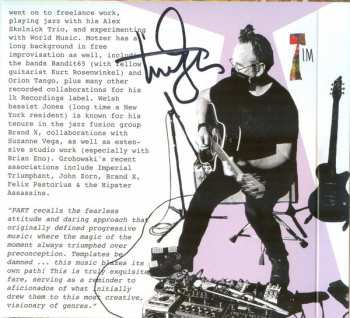 went on to freelance work,
playing jazz with his Alex
Skolnick Trio, and experimenting
with World Music. Motzer has a
long background in free
improvisation as well, includ
the bands Bandit65 (with fellow
guitarist Kurt Rosenwinkel) and
Orion Tango, plus many other
recorded collaborations for his
1k Recordings label. Welsh
bassist Jones (long time a New
York resident) is known for his
tenure in the jazz fusion group
Brand X, collaborations with
Suzanne Vega, as well as exten-
sive studio work (especially with
Brian Eno). Grohowski's recent
associations include Imperial
Triumphant, John Zorn, Brand X,
Felix Pastorius & the Hipster
Assassins.
"PAKT recalls the fearless
attitude and daring approach that
originally defined progressive
music: where the magic of the
moment always triumphed over
preconception. Templates be
damned ... this music blazes its
own path! This is truly exquisite
fare, serving as a reminder to
aficionados of what initially
drew them to this most creative,
visionary of genres."
TIM